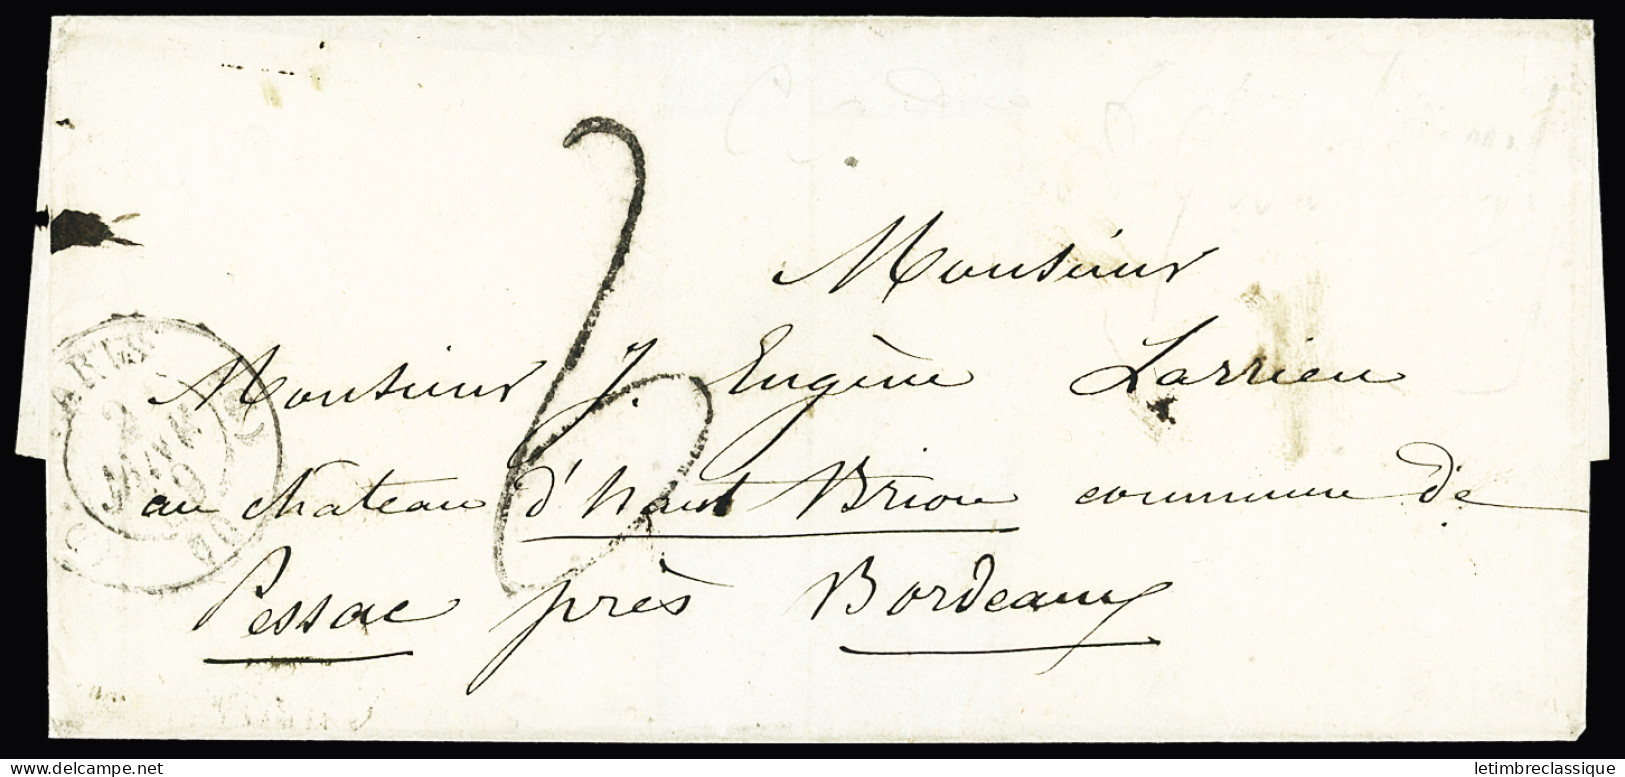 Monsieur
Monsieur J. Eugène Larrieu
au château d'haut Brion commune de
Pessac près Bordeaux
2
JANV
www.delcampe.net
letimbreclassique